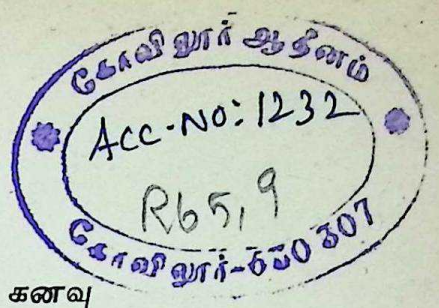 கோவிலூர் ஆதீனம்
ACC-NO: 1232
R65,9
கோவிலூர்-630 307
கனவு